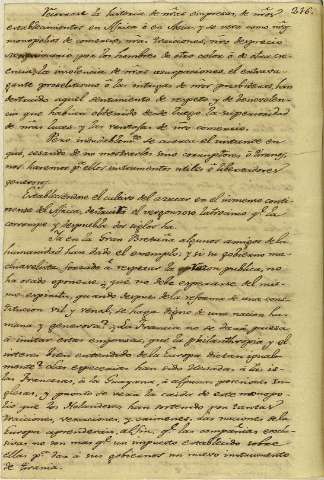 216.
Recorrase la historia de nras empresas, de nros
establecimientos en Africa ó en Asia, y se vera como nros
monopolios de comercio, nras traiciones, nro desprecio
sanguinario por los hombres de otro color ó de otra cre-
encia; la insolencia de nras usurpaciones, el extrava-
gante proselitismo ó las intrigas de nros presbiteros, han
destruido aquel sentimiento de respeto y de benevolen-
cia que habian obtenido desde luego la superioridad
de nras luces, y las ventajas de nro comercio.
Pero indudablemte se acerca el instante en
que, cesando de no mostrarles sino corruptores ó tiranos,
nos haremos pa ellos instrumentos utiles ó libertadores
generosos.
Estableciendose el cultivo del azucar en el inmenso conti-
nente del Africa, destruirá el vergonzoso latrocinio qe la
corrompe y despuebla dos siglos ha.
Ya en la Gran Bretaña algunos amigos de la
humanidad han dado el exemplo; y si su gobierno ma-
chiavelista, forzado á respetar la opinion publica, no
ha osado oponerse, ¿qué no debe esperarse del mis-
mo espiritu, quando despues de la reforma de una cons-
titucion vil y venal, se haga digno de una nacion hu-
mana y generosa? ¿La Francia no se dará priesa
á imitar estas empresas, que la philanthropia y el
interes bien entendido de la Europa dictan igual-
mente? Las especerias han sido llevadas á las is-
las Francesas, á la Guayana, á algunas posesiones In-
glesas, y pronto se verá la caida de este monopo-
lio que los Holandeses han sostenido por tantas
traiciones, vexaciones, y crimenes. Las naciones de la
Europa aprenderán al fin, qe las compañias exclu-
sivas no son mas qe un impuesto establecido sobre
ellas pa dar á sus gobiernos un nuevo instrumento
de tirania.